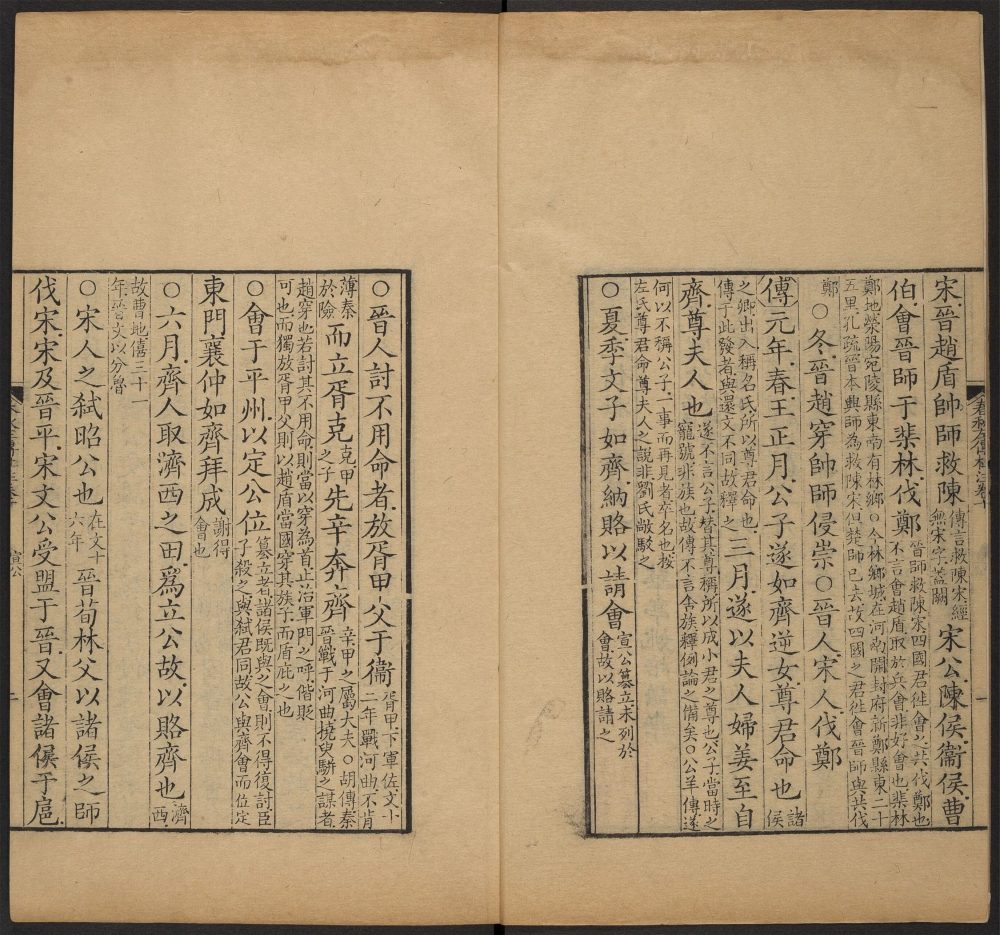 宋晉趙盾帥師救陳傳言救陳宋經無宋字蓋闕宋公陳侯衞侯曹
伯會晉師于棐林伐鄭晉師救陳宋四國君徃會之共伐鄭也不言會趙盾取於兵會非好會也棐林
鄭地滎陽宛陵縣東南有林鄉○今林鄉城在河南開封府新鄭縣東二十五里孔疏晉本興師為救陳宋但楚師已去故四國之君徃會晉師與共伐
鄭○冬晉趙穿帥師侵崇○晉人宋人伐鄭
傳元年春王正月公子遂如齊逆女尊君命也諸侯
之卿出入稱名氏所以尊君命也傳于此發者與還文不同故釋之三月遂以夫人婦姜至自
齊尊夫人也遂不言公子替其尊稱所以成小君之尊也公子當時之寵號非族也故傳不言舍族釋例論之備矣○公羊傳遂
何以不稱公子一事而再見者卒名也按左氏尊君命尊夫人之說非劉氏敞駁之
○夏季文子如齊納賂以請會宣公篡立未列於會故以賂請之
春秋左傳杜注卷十
一
○晉人討不用命者放胥甲父于衞胥甲下軍佐文十二年戰河曲不肯
薄秦於險而立胥克克甲之子先辛奔齊辛甲之屬大夫○胡傳秦晉戰于河曲撓臾駢之謀者
趙穿也若討其不用命則當以穿為首止治軍門之呼偕貶可也而獨放胥甲父則以趙盾當國穿其族子而盾庇之也
○會于平州以定公位篡立者諸侯既與之會則不得復討臣子殺之與弒君同故公與齊會而位定
東門襄仲如齊拜成謝得會也
○六月齊人取濟西之田爲立公故以賂齊也濟西
故曹地僖三十一年晉文以分魯
○宋人之弒昭公也在文十六年晉荀林父以諸侯之師
伐宋宋及晉平宋文公受盟于晉又會諸侯于扈
宣公
二